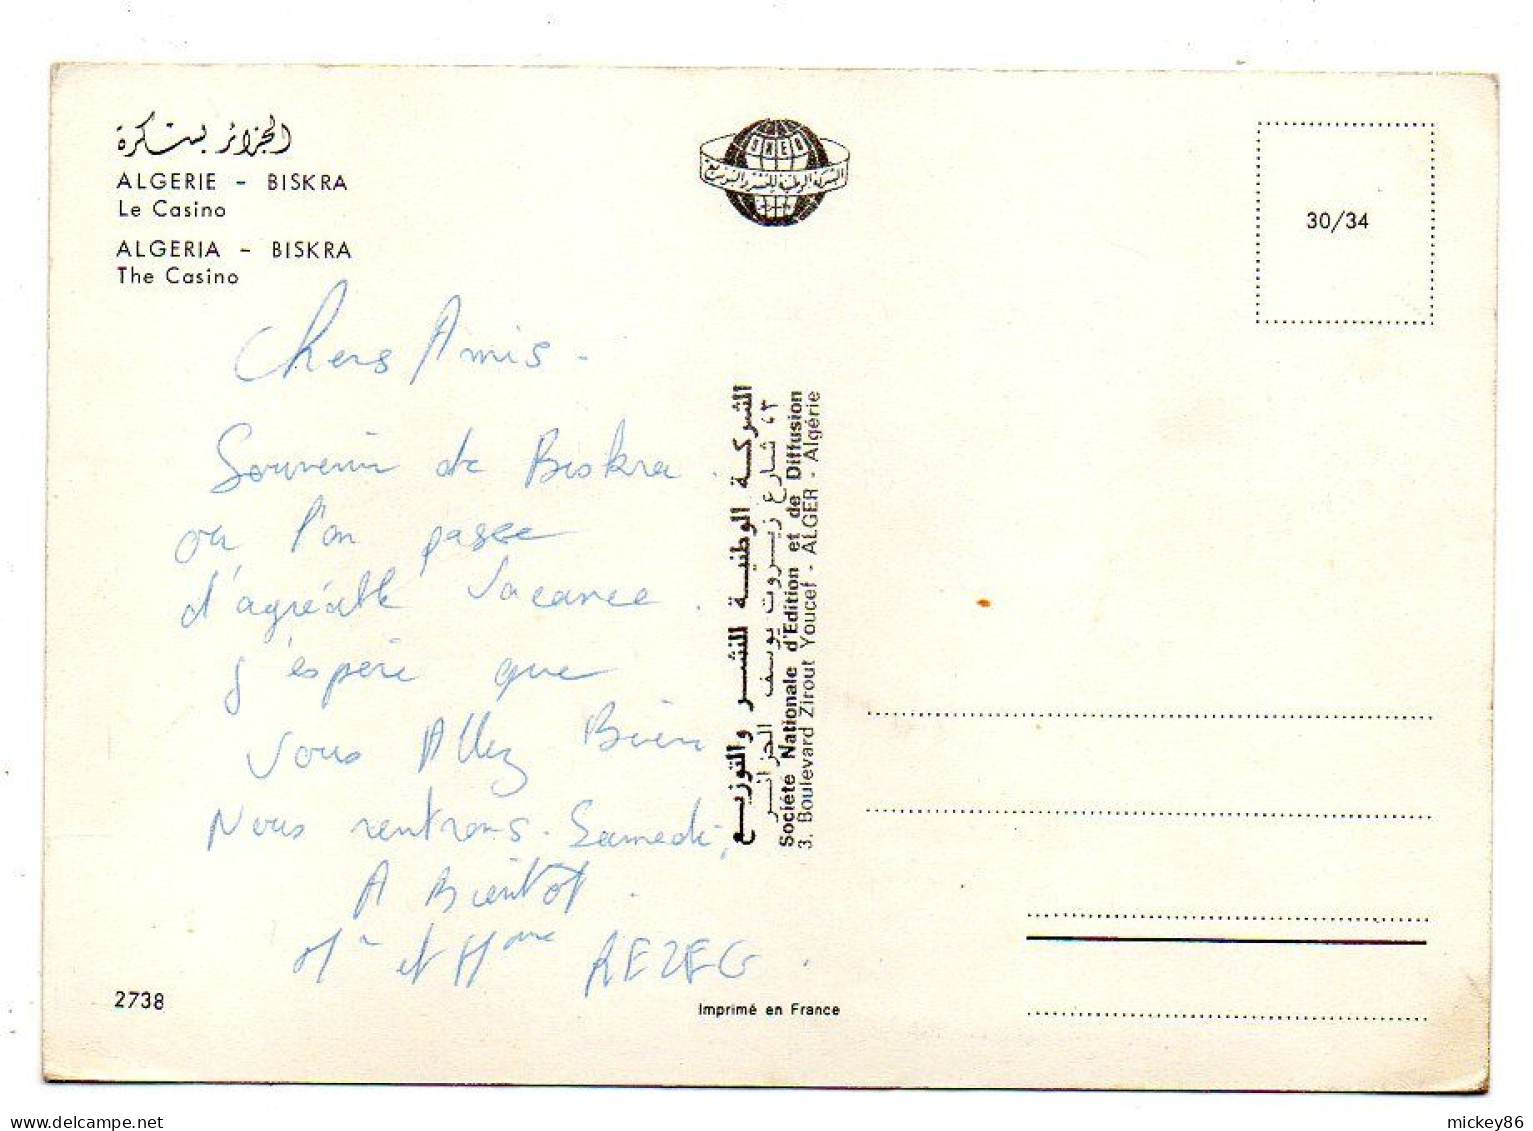 الجزائر بسكرة
ALGERIE - BISKRA
Le Casino
ALGERIA - BISKRA
The Casino
Chers Amis.
Souvenir de Biskra.
ou l'on passe
d'agréable Vacance.
j'espère que
Vous Allez Bien
Nous rentrons. Samedi,
A Bientôt.
Mr et Mme REZEG.
2738
SNED
الشركة الوطنية للنشر والتوزيع
الشركة الوطنية للنشر والتوزيع
٣، شارع زيروت يوسف الجزائر
Société Nationale d'Edition et de Diffusion
3, Boulevard Zirout Youcef - ALGER - Algérie
Imprimé en France
30/34
mickey86